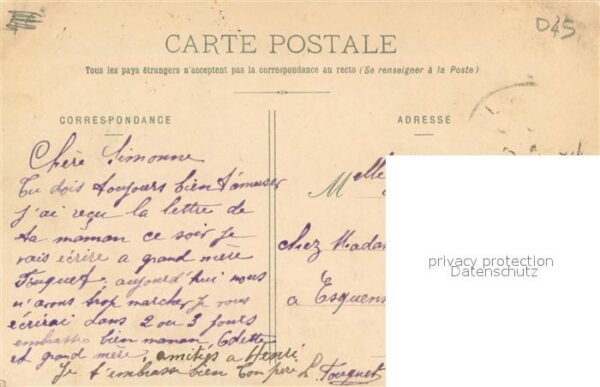 D45
CARTE POSTALE
Tous les pays étrangers n'acceptent pas la correspondance au recto (Se renseigner à la Poste)
CORRESPONDANCE
ADRESSE
Chère Simonne
Tu dois toujours bien t'amuser
j'ai reçu la lettre de
ta maman ce soir je
vais écrire a grand mère
Fouquet, aujourd'hui nous
n'avons trop marcher je vous
écrirai dans 2 ou 3 jours
embrasse bien maman Odette
et grand mère, amitiés a Henri
Je t'embrasse bien Ton père L. Fouquet
Melle
chez Madam
a Esquenn
privacy protection
Datenschutz